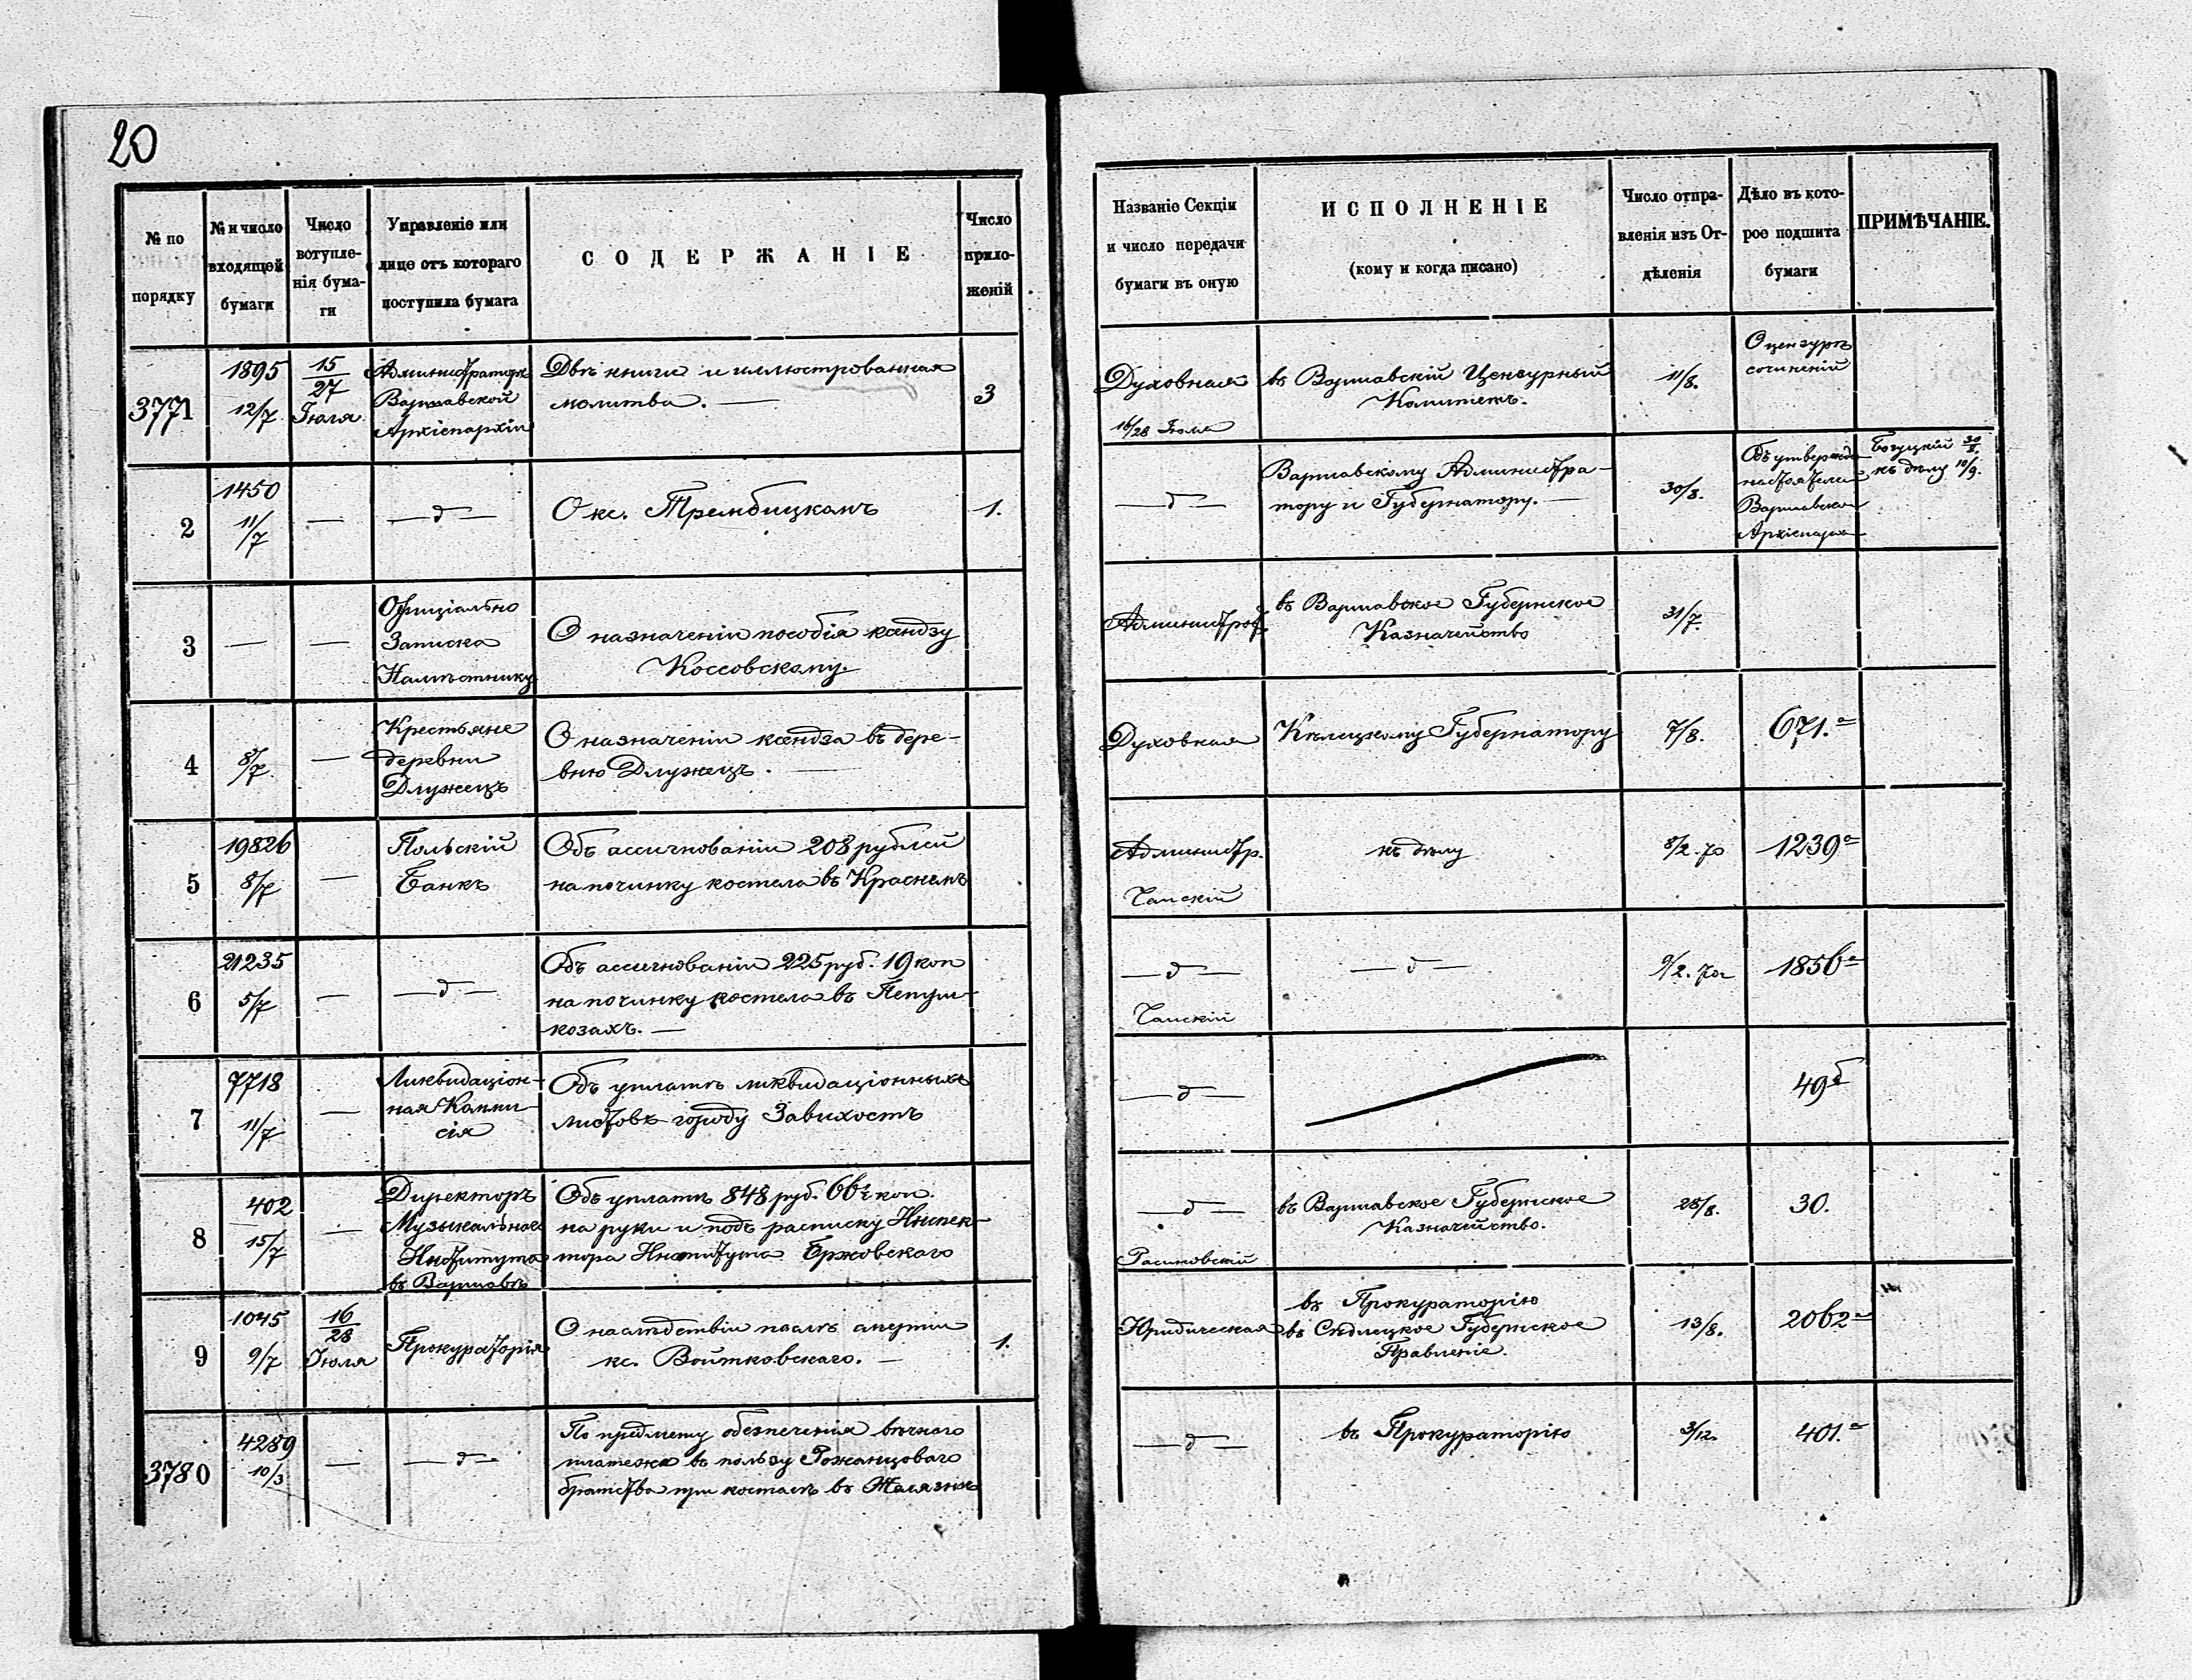 20
№ по порядку
№ и число входящей бумаги
Число вступле-нія бума-ги
Управленіе или лице отъ котораго поступила бумага
СОДЕРЖАНІЕ
Число прило-женій
Названіе Секціи и число передачи бумаги въ оную
ИСПОЛНЕНІЕ
(кому и когда писано)
Число отпра-вленія изъ От-дѣленія
Дѣло въ кото-рое подшита бумаги
ПРИМѢЧАНІЕ.
3771
1895
12/7
15/27 Іюля
Администраторъ
Варшавской
Архіепархіи
Двѣ книги и иллюстрованная
молитва. —
3
Духовная
16/28 Іюля
въ Варшавскій Цензурный
Комитетъ.
11/8.
О цензурѣ
сочиненій
2
1450
11/7
—
— д —
О кс. Трембицкомъ
1.
— д —
Варшавскому Администра-
тору и Губернатору. —
30/8.
Объ утвержд
настоятели
Варшавской
Архіепарх
Богуцкій 30/8.
къ дѣлу 10/9.
3
—
—
Офиціально
Записка
Намѣстнику
О назначеніи пособія ксендзу
Коссовскому.
Администрат
въ Варшавское Губернское
Казначейство
31/7.
4
8/7.
—
Крестьяне
деревни
Длужецъ
О назначеніи ксендза въ дере-
вню Длужецъ. —
Духовная
Кѣлецкому Губернатору
7/8.
671.а
5
19826
8/7
—
Польскій
Банкъ
Объ ассигнованіи 208 рублей
на починку костела въ Красномъ
Администр.
къ дѣлу
8/2. 70
1239а
6
21235
5/7
—
— д —
Объ ассигнованіи 225 руб. 19 коп
на починку костела въ
козахъ. —
— д —
— д —
9/2. 70
1856а
7
7718
11/7
—
Ликвидаціон-
ная Комми-
сія
Объ уплатѣ ликвидаціонныхъ
листовъ городу Завихостъ
— д —
49б
8
402
15/7
—
Директоръ
Музыкальнаго
Института
въ Варшавѣ
Объ уплатѣ 848 руб. 66½ коп.
на руки и подъ расписку Инспек-
тора Института Бржовскаго
— д —
въ Варшавское Губернское
Казначейство.
28/8.
30.
9
1045
9/7
16/28 Іюля
Прокураторія
О наслѣдствіи послѣ смерти
кс. Войтковскаго. —
1.
Юридическая
въ Прокураторію
въ Сѣдлецкое Губернское
Правленіе.
13/8.
2062а
3780
4289
10/3
—
— д —
По предмету обезпеченія вѣчнаго
платежа въ пользу Рожанцоваго
братства при костелѣ въ
— д —
въ Прокураторію
3/12.
401.а